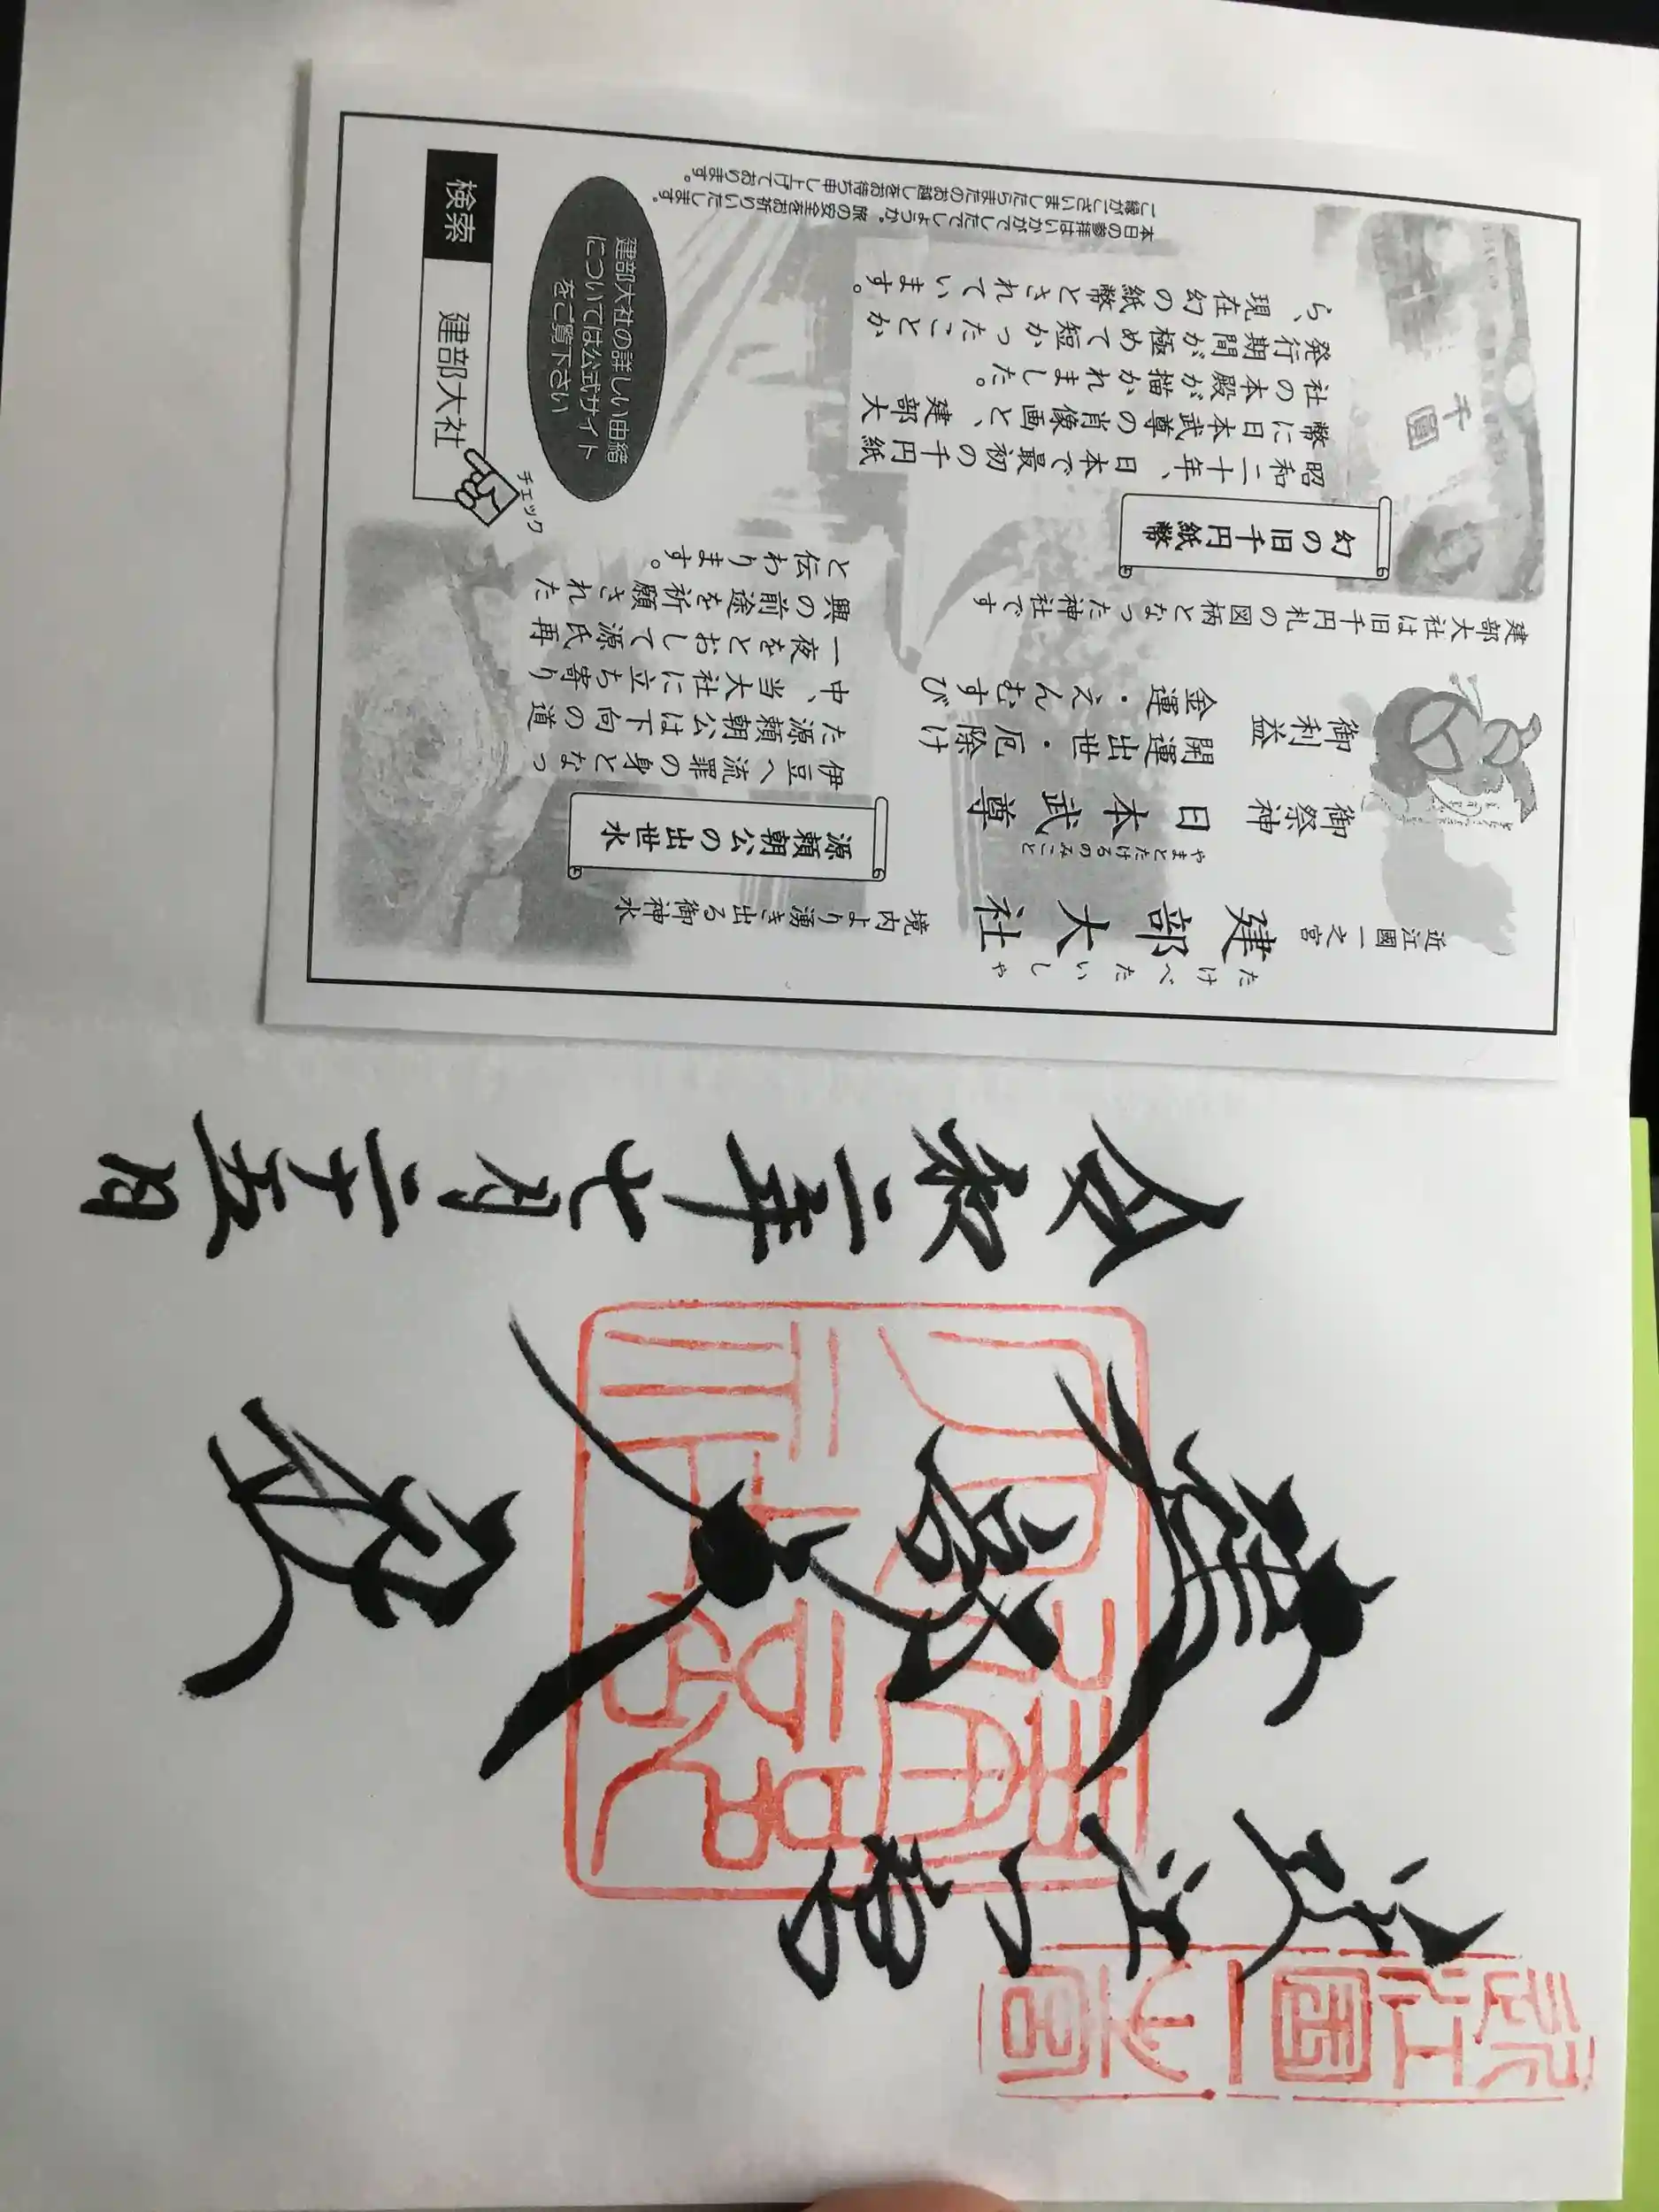 近江一宮
建部大社
参拝
令和二年七月二十五日
近江國一之宮
たけべたいしゃ
近江國一之宮
建部大社
やまとたけるのみこと
御祭神 日本武尊
御利益 開運出世・厄除け
金運・えんむすび
建部大社は旧千円札の図柄となった神社です
幻の旧千円紙幣
昭和二十年、日本で最初の千円紙
幣に日本武尊の肖像画と、建部大
社の本殿が描かれました。
発行期間が極めて短かったことか
ら、現在幻の紙幣とされています。
千圓
境内より湧き出る御神水
源頼朝公の出世水
伊豆へ流罪の身となっ
た源頼朝公は下向の道
中、当大社に立ち寄り
一夜をとおして源氏再
興の前途を祈願された
と伝わります。
本日の参拝はいかがでしたでしょうか。旅の安全をお祈りいたします。
ご縁がございましたらまたのお越しをお待ち申し上げております。
建部大社の詳しい由緒
については公式サイト
をご覧下さい
チェック
検索 建部大社